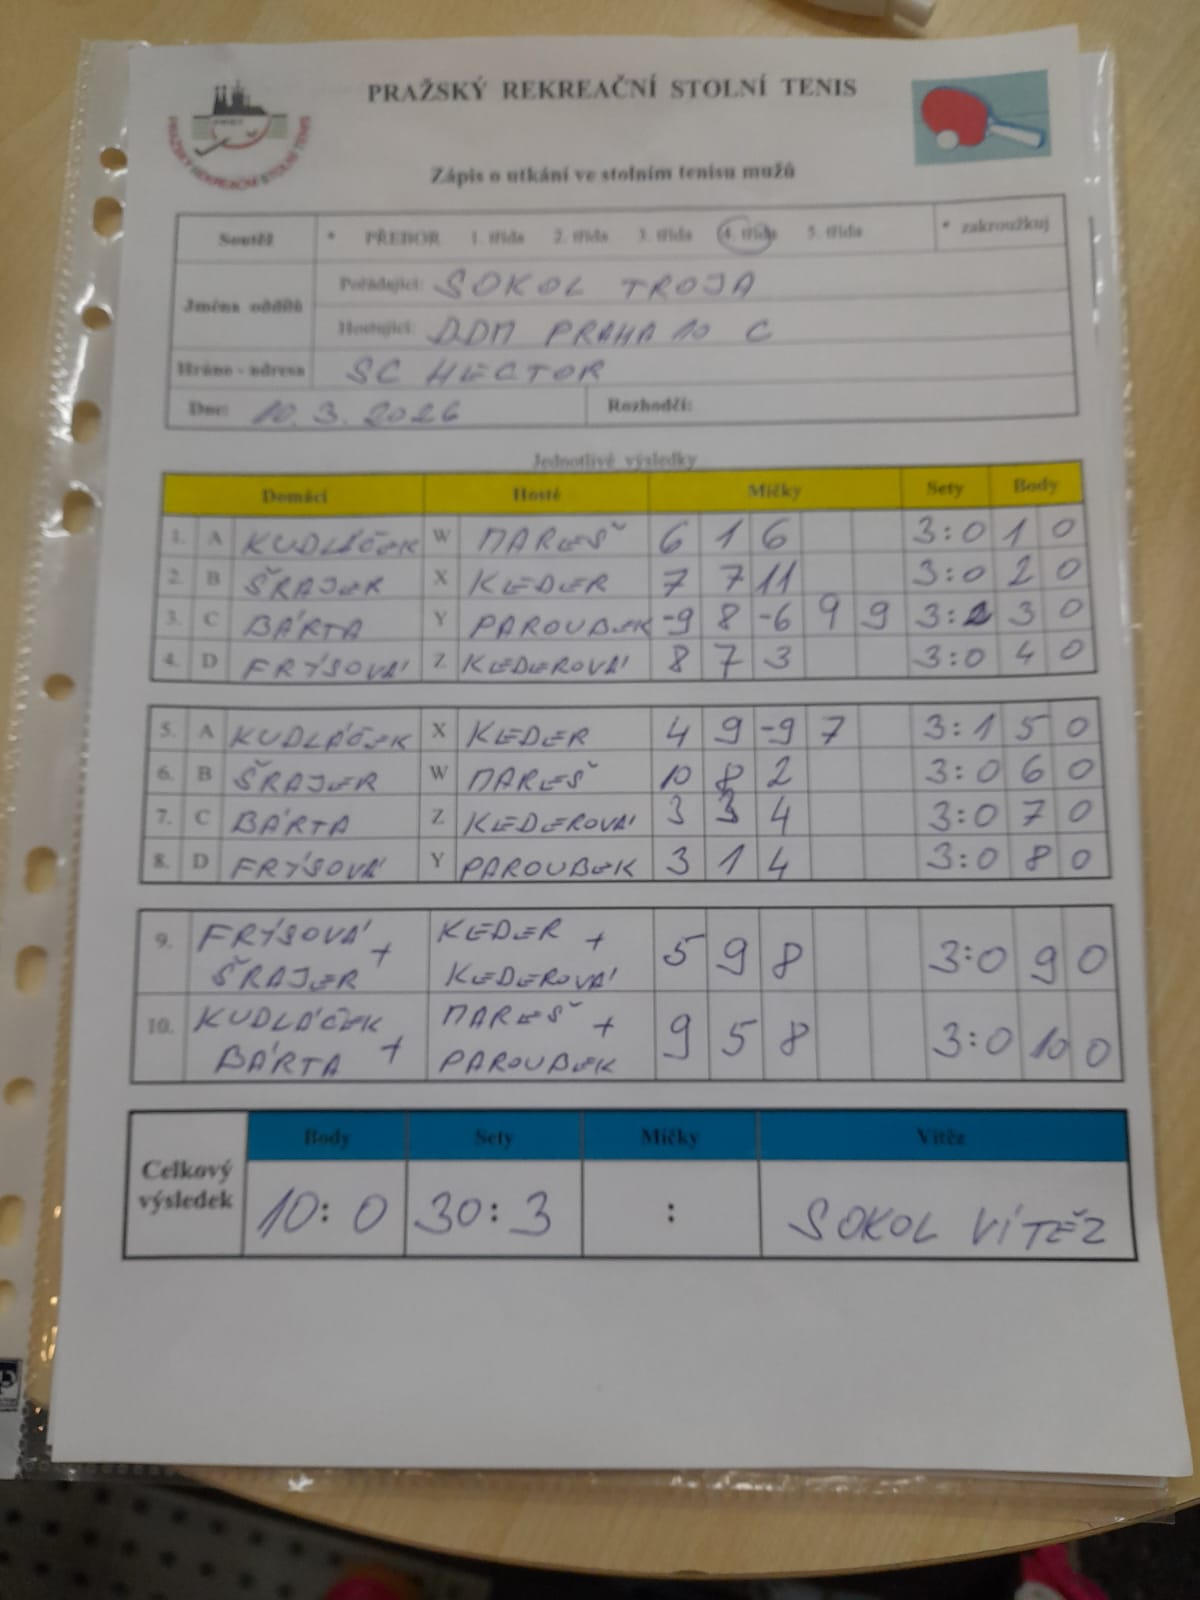 PRAŽSKÝ REKREAČNÍ STOLNÍ TENIS
PRAŽSKÝ REKREAČNÍ STOLNÍ TENIS
Zápis o utkání ve stolním tenisu mužů
Soutěž * PŘEBOR 1. třída 2. třída 3. třída 4. třída 5. třída * zakroužkuj
Jména oddílů
Pořádající: SOKOL TROJA
Hostující: DDM PRAHA 10 C
Hráno - adresa SC HECTOR
Dne: 10. 3. 2026 Rozhodčí:
Jednotlivé výsledky
Domácí Hosté Míčky Sety Body
1. A KUDLÁČEK W MAREŠ 6 1 6 3:0 1 0
2. B ŠRAJER X KEDER 7 7 11 3:0 2 0
3. C BÁRTA Y PAROUBEK -9 8 -6 9 9 3:2 3 0
4. D FRÝSOVÁ Z KEDEROVÁ 8 7 3 3:0 4 0
5. A KUDLÁČEK X KEDER 4 9 -9 7 3:1 5 0
6. B ŠRAJER W MAREŠ 10 8 2 3:0 6 0
7. C BÁRTA Z KEDEROVÁ 3 3 4 3:0 7 0
8. D FRÝSOVÁ Y PAROUBEK 3 1 4 3:0 8 0
9. FRÝSOVÁ + KEDER + 5 9 8 3:0 9 0
ŠRAJER KEDEROVÁ
10. KUDLÁČEK + MAREŠ + 9 5 8 3:0 10 0
BÁRTA PAROUBEK
Body Sety Míčky Vítěz
Celkový
výsledek
10:0 30:3 : SOKOL VÍTĚZ